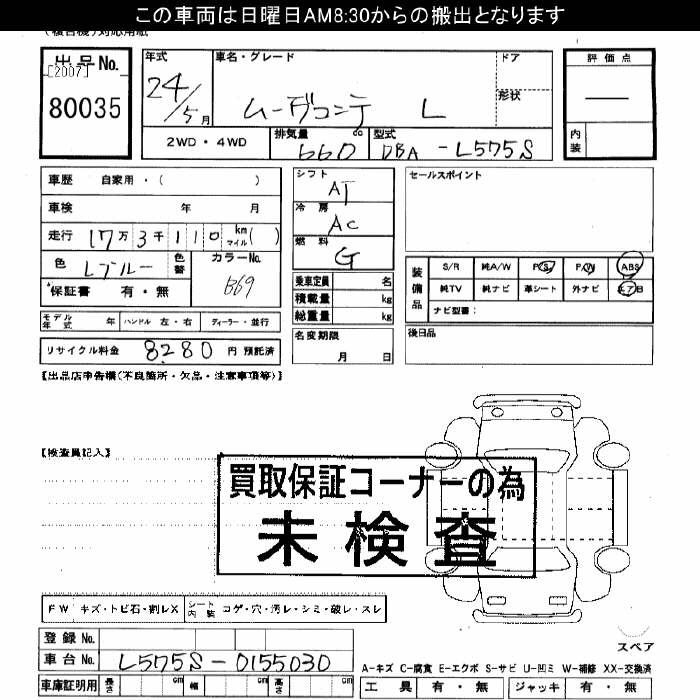 この車両は日曜日AM8:30からの搬出となります
(複合機)対応用紙
出品No.
[2007]
80035
年式
24/5月
車名・グレード
ムーヴコンテ L
ドア
形状
評価点
内装
2WD・4WD
排気量 660 cc
型式 DBA-L575S
車歴 自家用・( )
車検 年 月
走行 17万3千110 km マイル( )
色 Lブルー
色替
カラーNo. B69
保証書 有・無
モデル年式 年 ハンドル 左・右 ディーラー・並行
リサイクル料金 8280 円 預託済
シフト AT
冷房 AC
燃料 G
乗車定員 名
積載量 kg
総重量 kg
名変期限
月 日
セールスポイント
装備品
S/R 純A/W P/S P/W ABS
純TV 純ナビ 革シート 外ナビ エアB
ナビ型番:
後日品
【出品店申告欄(不良箇所・欠品・注意事項等)】
【検査員記入】
買取保証コーナーの為
未検査
FW キズ・トビ石・割レX シート内装 コゲ・穴・汚レ・シミ・破レ・スレ
登録No.
車台No. L575S-0155030
車庫証明用 長さ cm 幅 cm 高さ cm
スペア
A-キズ C-腐食 E-エクボ S-サビ U-凹ミ W-補修 XX-交換済
工具 有・無 ジャッキ 有・無